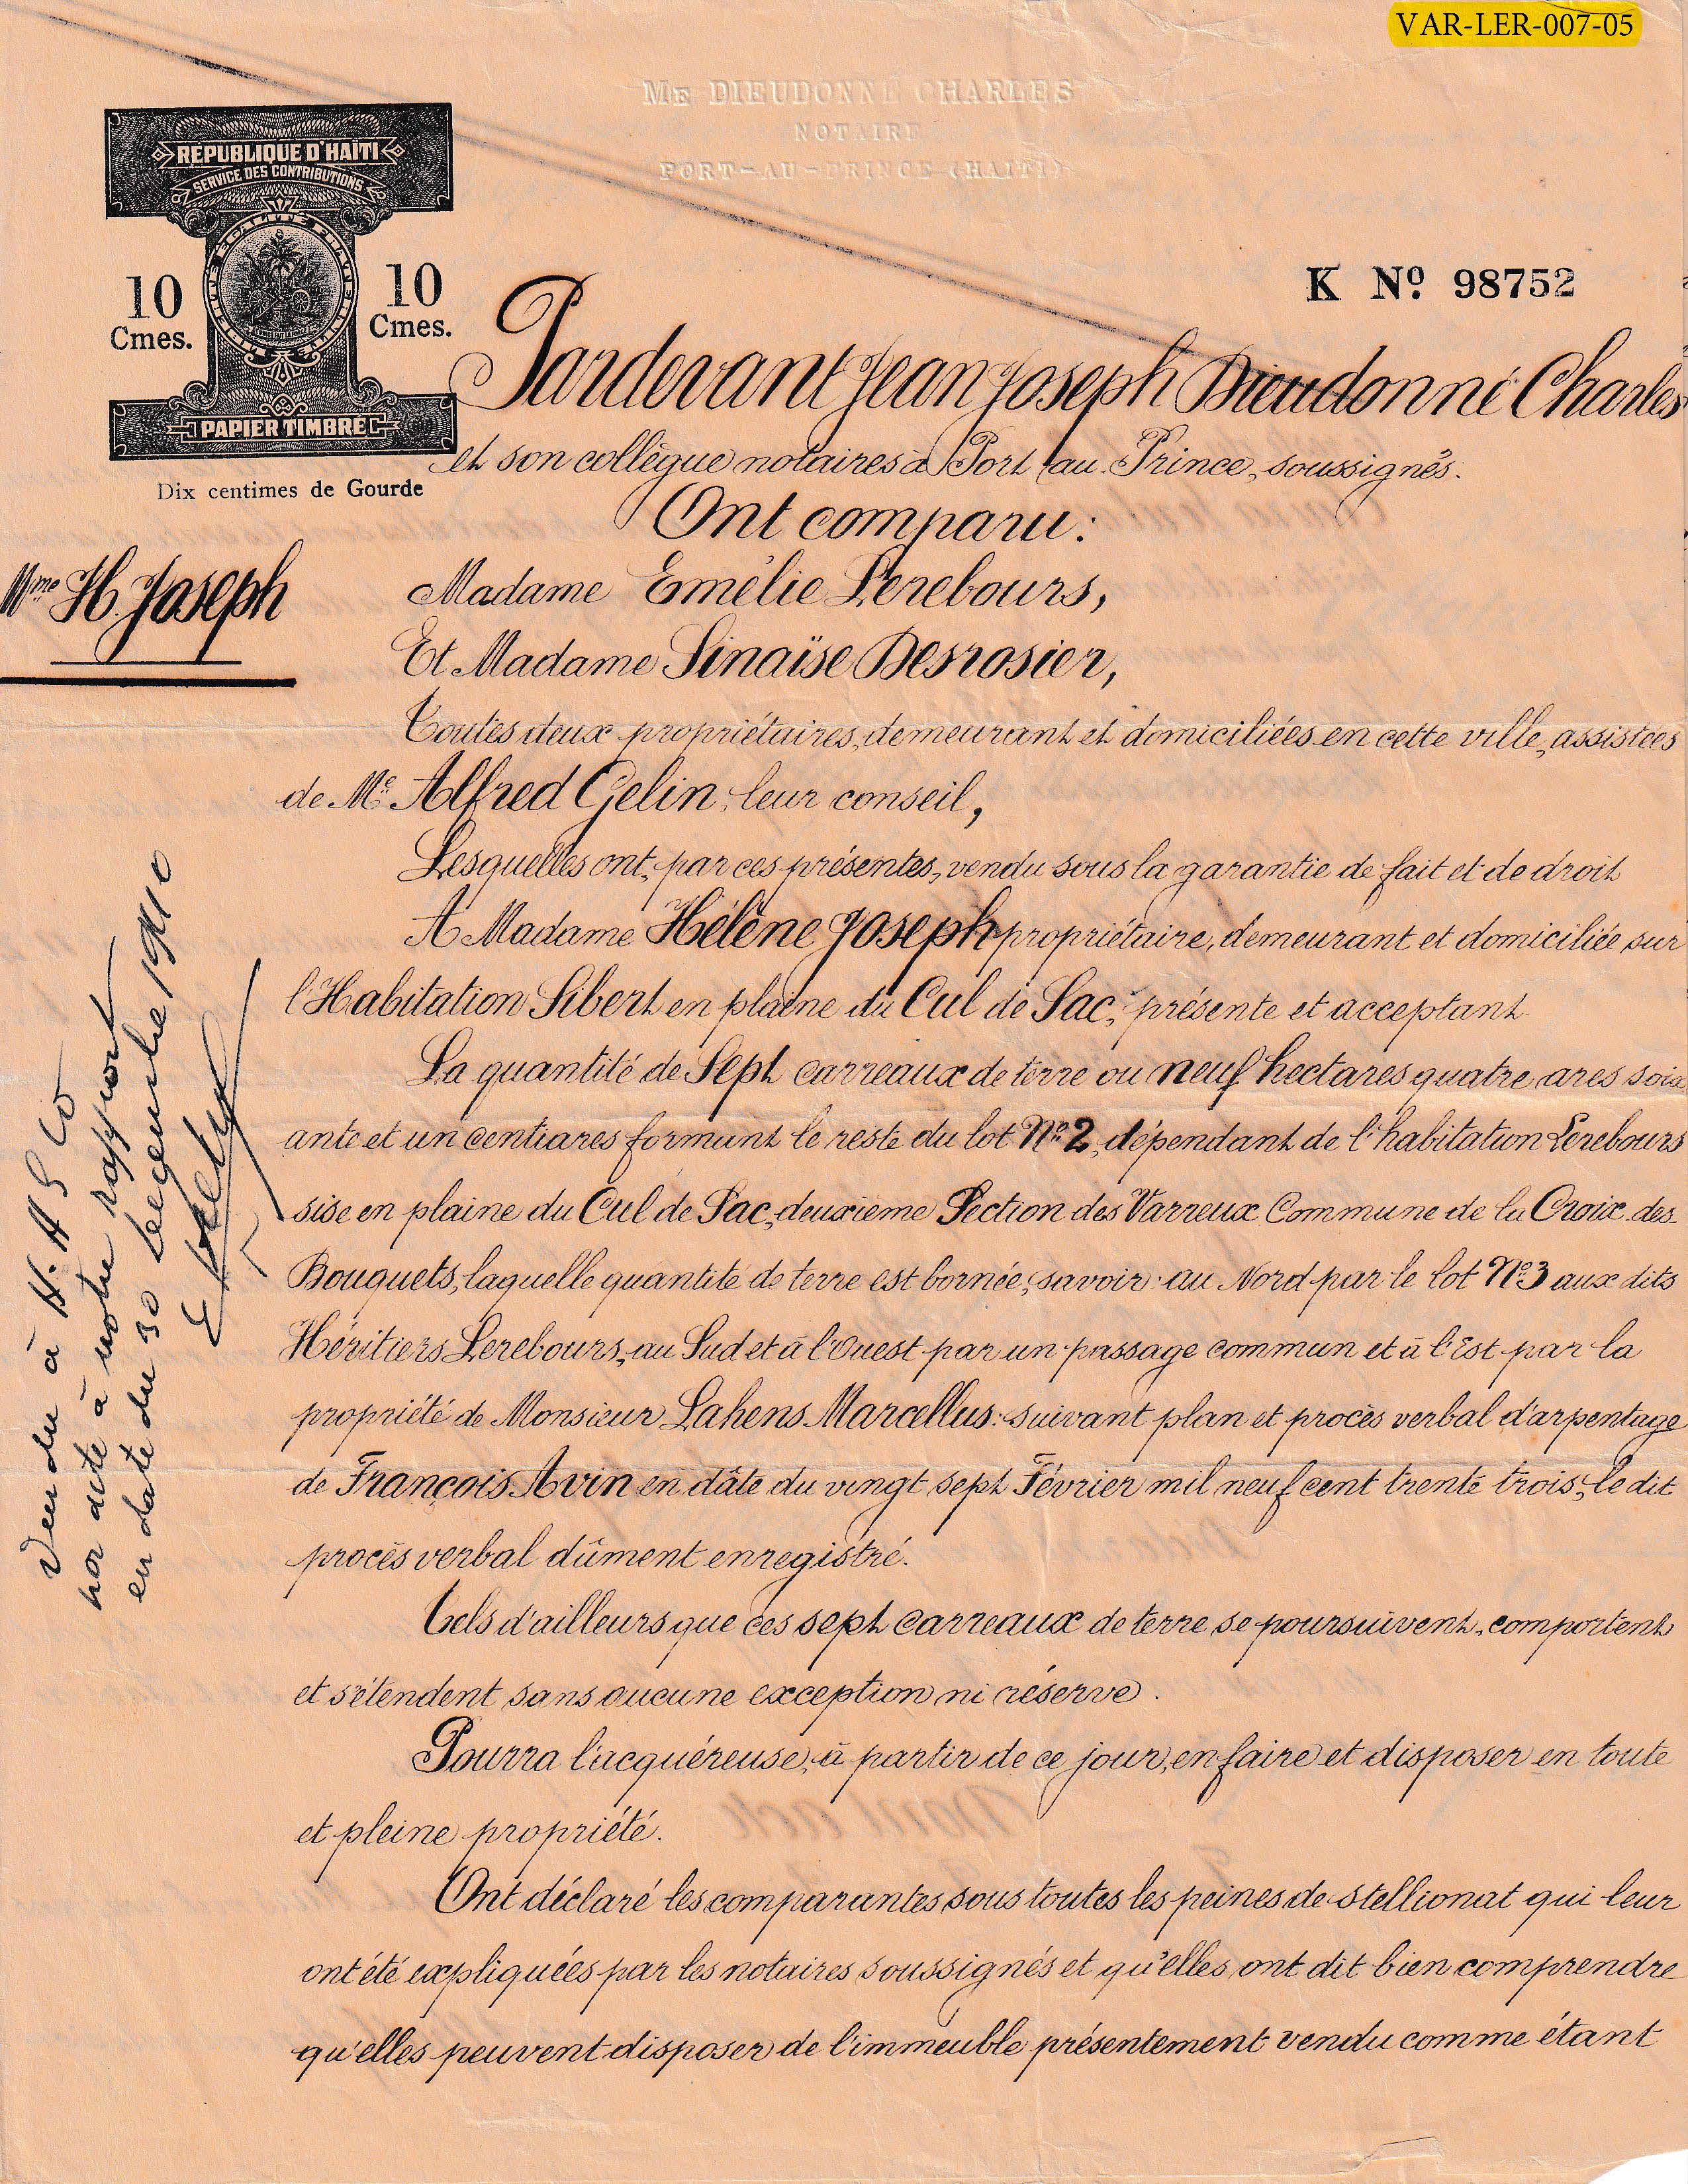 VAR-LER-007-05
ME DIEUDONNÉ CHARLES
NOTAIRE
PORT-AU-PRINCE (HAITI)
REPUBLIQUE D'HAÏTI
SERVICE DES CONTRIBUTIONS
10 Cmes.
10 Cmes.
PAPIER TIMBRÉ
Dix centimes de Gourde
K Nº 98752
Pardevant Jean Joseph Dieudonné Charles
et son collègue notaires à Port au Prince, soussignés.
Ont comparu:
Mme H. Joseph
Madame Emélie Lerebours,
Et Madame Sinaïse Desrosier,
Toutes deux propriétaires, demeurant et domiciliées en cette ville, assistées
de Me Alfred Gelin, leur conseil,
Lesquelles ont, par ces présentes, vendu sous la garantie de fait et de droit
A Madame Hélène Joseph propriétaire, demeurant et domiciliée sur
l'Habitation Sibert en plaine du Cul de Sac, présente et acceptant
La quantité de Sept carreaux de terre ou neuf hectares quatre ares soix
ante et un centiares formant le reste du lot Nº 2, dépendant de l'habitation Lerebours
sise en plaine du Cul de Sac, deuxième Section des Varreux Commune de la Croix-des-
Bouquets, laquelle quantité de terre est bornée, savoir: au Nord par le lot Nº 3 aux dits
Héritiers Lerebours, au Sud et à l'Ouest par un passage commun et à l'Est par la
propriété de Monsieur Lahens Marcellus: suivant plan et procès verbal d'arpentage
de François Avin en dâte du vingt sept Février mil neuf cent trente trois, le dit
procès verbal dûment enregistré.
Tels d'ailleurs que ces sept carreaux de terre se poursuivent, comportent
et s'étendent sans aucune exception ni réserve.
Pourra l'acquéreuse, à partir de ce jour, en faire et disposer en toute
et pleine propriété.
Ont déclaré les comparantes sous toutes les peines de stellionat qui leur
ont été expliquées par les notaires soussignés et qu'elles ont dit bien comprendre
qu'elles peuvent disposer de l'immeuble présentement vendu comme étant
Vendu à H.A.S Co
par acte à notre rapport
en date du 30 Decembre